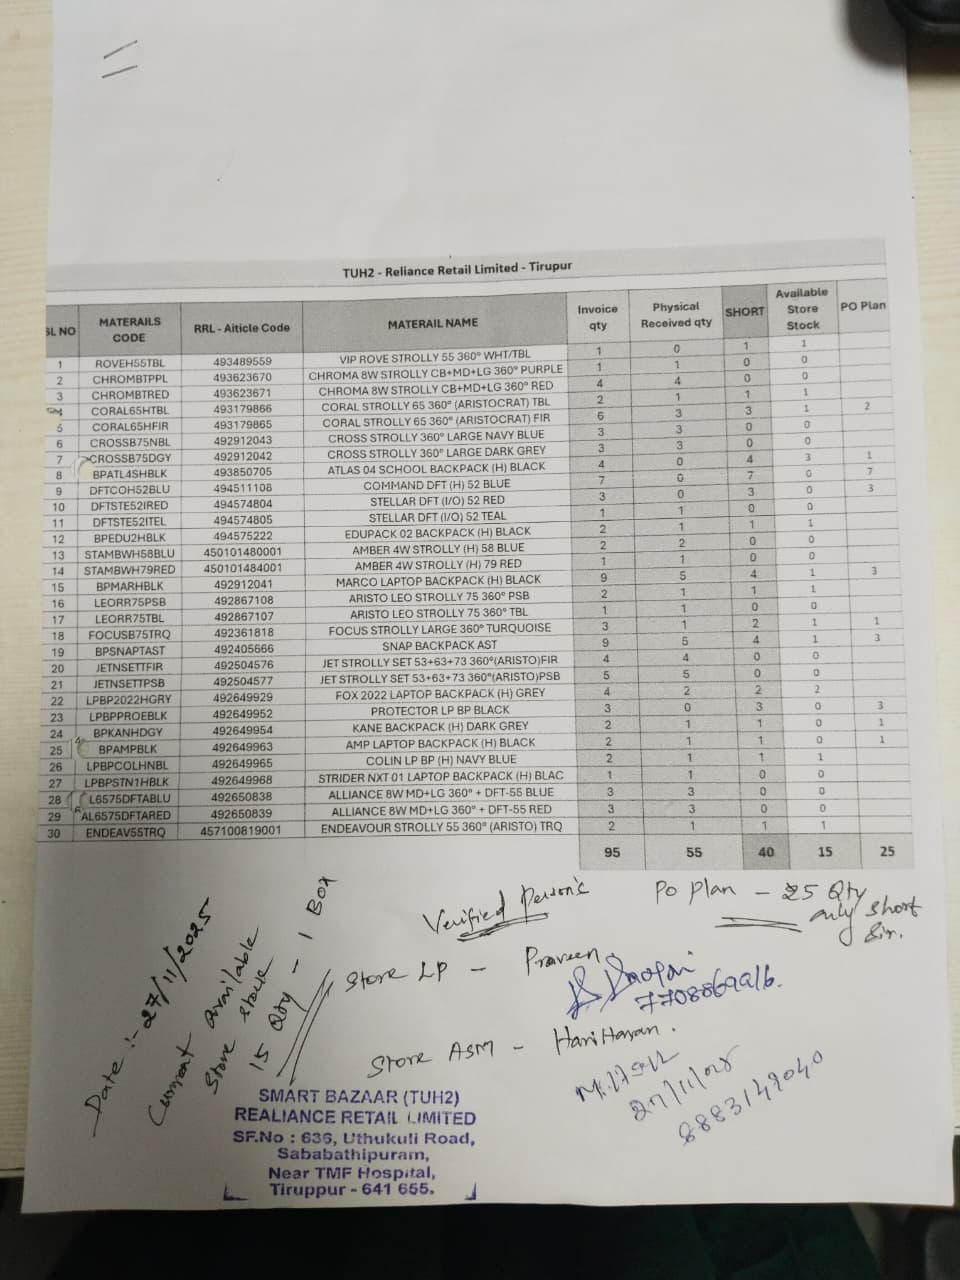 TUH2 - Reliance Retail Limited - Tirupur
SL NO MATERAILS CODE RRL - Aiticle Code MATERAIL NAME Invoice qty Physical Received qty SHORT Available Store Stock PO Plan
1 ROVEH55TBL 493489559 VIP ROVE STROLLY 55 360° WHT/TBL 1 0 1 1
2 CHROMBTPPL 493623670 CHROMA 8W STROLLY CB+MD+LG 360° PURPLE 1 1 0 0
3 CHROMBTRED 493623671 CHROMA 8W STROLLY CB+MD+LG 360° RED 4 4 0 0
CORAL65HTBL 493179866 CORAL STROLLY 65 360° (ARISTOCRAT) TBL 2 1 1 1
5 CORAL65HFIR 493179865 CORAL STROLLY 65 360° (ARISTOCRAT) FIR 6 3 3 1 2
6 CROSSB75NBL 492912043 CROSS STROLLY 360° LARGE NAVY BLUE 3 3 0 0
7 CROSSB75DGY 492912042 CROSS STROLLY 360° LARGE DARK GREY 3 3 0 0
8 BPATL4SHBLK 493850705 ATLAS 04 SCHOOL BACKPACK (H) BLACK 4 0 4 3 1
9 DFTCOH52BLU 494511108 COMMAND DFT (H) 52 BLUE 7 0 7 0 7
10 DFTSTE52IRED 494574804 STELLAR DFT (I/O) 52 RED 3 0 3 0 3
11 DFTSTE52ITEL 494574805 STELLAR DFT (I/O) 52 TEAL 1 1 0 0
12 BPEDU2HBLK 494575222 EDUPACK 02 BACKPACK (H) BLACK 2 1 1 1
13 STAMBWH58BLU 450101480001 AMBER 4W STROLLY (H) 58 BLUE 2 2 0 0
14 STAMBWH79RED 450101484001 AMBER 4W STROLLY (H) 79 RED 1 1 0 0
15 BPMARHBLK 492912041 MARCO LAPTOP BACKPACK (H) BLACK 9 5 4 1 3
16 LEORR75PSB 492867108 ARISTO LEO STROLLY 75 360° PSB 2 1 1 1
17 LEORR75TBL 492867107 ARISTO LEO STROLLY 75 360° TBL 1 1 0 0
18 FOCUSB75TRQ 492361818 FOCUS STROLLY LARGE 360° TURQUOISE 3 1 2 1 1
19 BPSNAPTAST 492405666 SNAP BACKPACK AST 9 5 4 1 3
20 JETNSETTFIR 492504576 JET STROLLY SET 53+63+73 360°(ARISTO)FIR 4 4 0 0
21 JETNSETTPSB 492504577 JET STROLLY SET 53+63+73 360°(ARISTO)PSB 5 5 0 0
22 LPBP2022HGRY 492649929 FOX 2022 LAPTOP BACKPACK (H) GREY 4 2 2 2
23 LPBPPROEBLK 492649952 PROTECTOR LP BP BLACK 3 0 3 0 3
24 BPKANHDGY 492649954 KANE BACKPACK (H) DARK GREY 2 1 1 0 1
25 BPAMPBLK 492649963 AMP LAPTOP BACKPACK (H) BLACK 2 1 1 0 1
26 LPBPCOLHNBL 492649965 COLIN LP BP (H) NAVY BLUE 2 1 1 1
27 LPBPSTN1HBLK 492649968 STRIDER NXT 01 LAPTOP BACKPACK (H) BLAC 1 1 0 0
28 L6575DFTABLU 492650838 ALLIANCE 8W MD+LG 360° + DFT-55 BLUE 3 3 0 0
29 AL6575DFTARED 492650839 ALLIANCE 8W MD+LG 360° + DFT-55 RED 3 3 0 0
30 ENDEAV55TRQ 457100819001 ENDEAVOUR STROLLY 55 360° (ARISTO) TRQ 2 1 1 1
95 55 40 15 25
Date :- 27/11/2025
Current available
Store stock
15 Qty - 1 Box
Verified Person's
Po Plan - 25 Qty
only short
Sir.
Store LP - Praveen
7708869916.
Store ASM - Hariharan.
8883149040
SMART BAZAAR (TUH2)
REALIANCE RETAIL LIMITED
SF.No : 636, Uthukuli Road,
Sababathipuram,
Near TMF Hospital,
Tiruppur - 641 655.